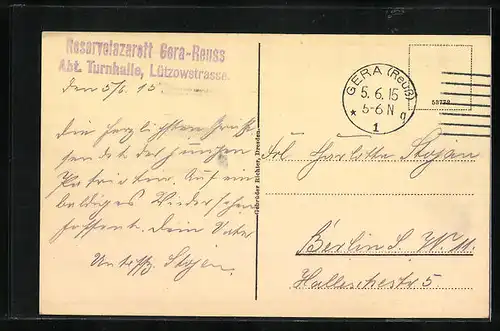 Reservelazarett Gera-Reuss
Abt. Turnhalle, Lützowstrasse.
den 5/6. 15.
Die herzlichsten
sendet der
Auf ein
baldiges Wiedersehen
hoffend. Dein Vater
Untffz. Stojan.
Gebrüder Richter, Dresden
GERA (Reuß)
5.6.15
5-6 N
* 1 g
58778
Frl. Charlotte Stojan
Berlin S. W. 11.
Halleschestr 5